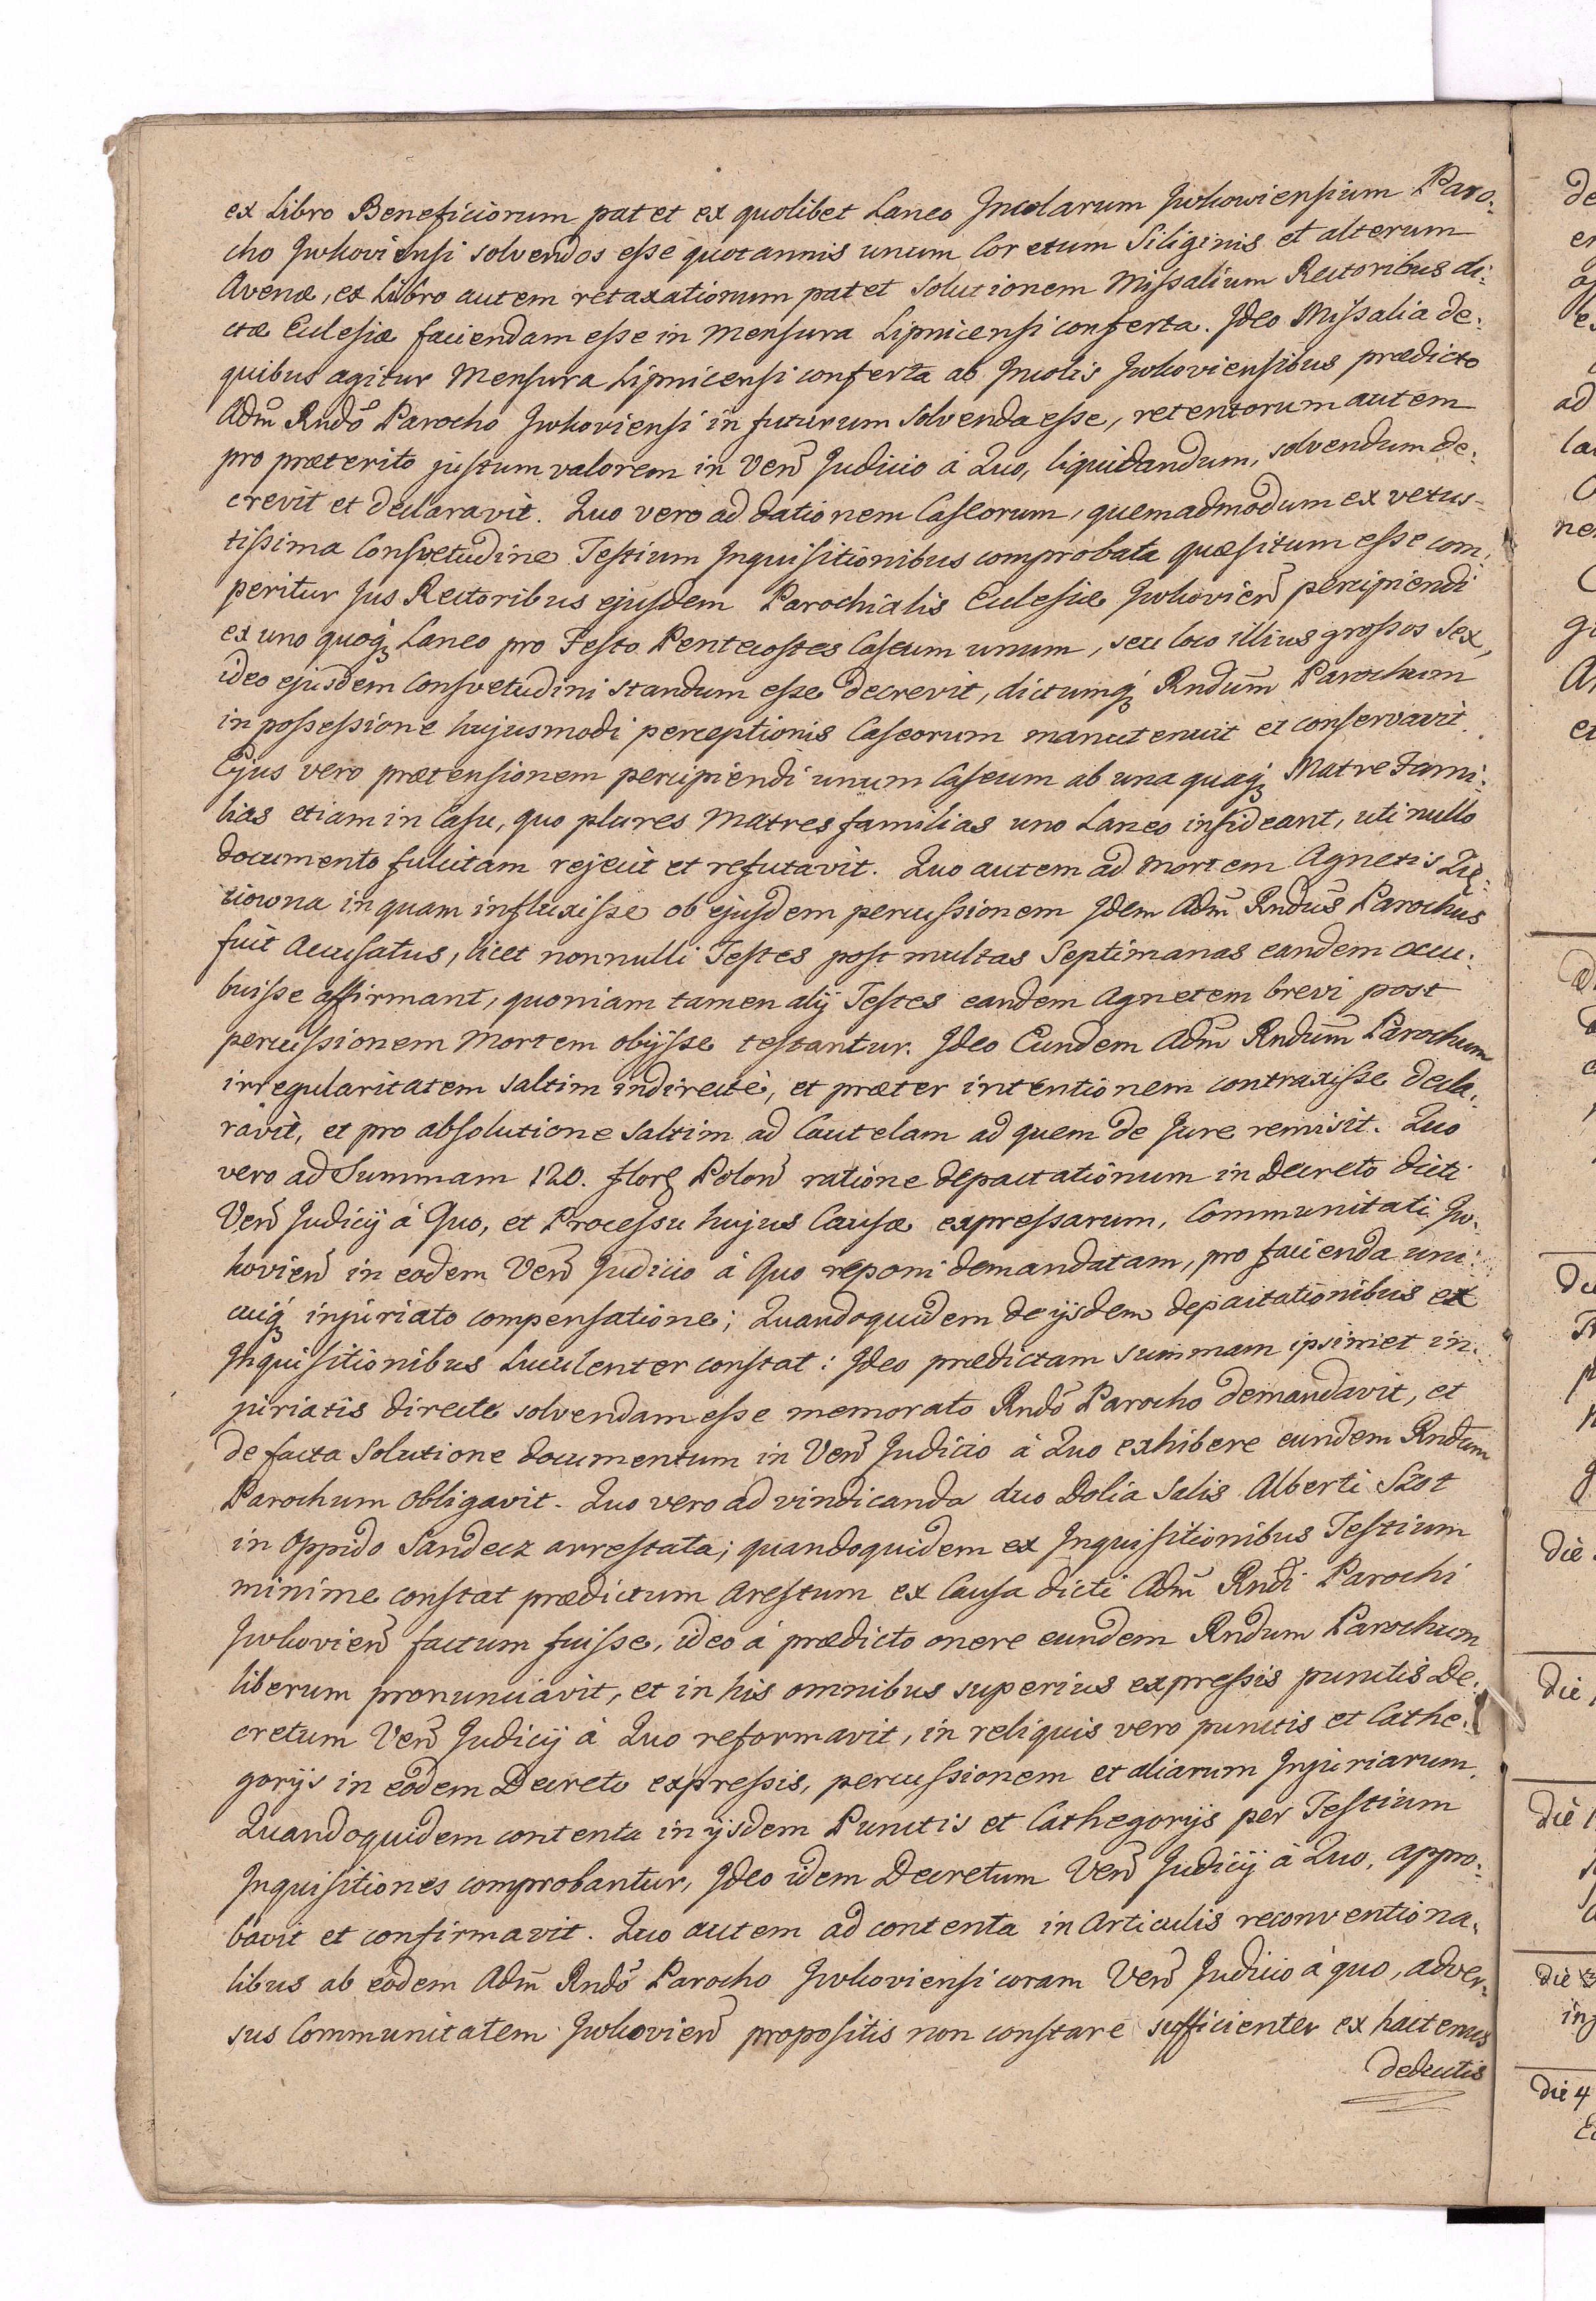 ex Libro Beneficiorum patet ex quolibet Laneo Incolarum Iwkowiensium Paro:
cho Iwkoviensi solvendos esse quotannis unum Coretum Siliginis et alterum
Avenæ, ex Libro autem retaxationum patet solutionem Missalium Rectoribus di:
ctæ Eclesiæ faciendam esse in Mensura Lipnicensi conferta. Ideo Missalia de:
quibus agitur Mensura Lipnicensi conferta ab Incolis Iwkoviensibus prædicto
Adm̃ Rndõ Parocho Iwkoviensi in futurum solvenda esse, retentorum autem
pro præterito justum valorem in Veñ Judicio à Quo, liquidandum, solvendum de:
crevit et declaravit. Quo vero ad dationem Caseorum, quemadmodum ex vetus-
tissima Consvetudine Testium Inquisitionibus comprobata quæsitum esse com:
peritur Jus Rectoribus ejusdem Parochialis Eclesiæ Iwkovieñ percipiendi
ex uno quoq̃ Laneo pro Festo Pentecostes Caseum unum, seu loco illius grossos sex,
ideo ejusdem Consvetudini standum esse decrevit, dictumq̃ Rndum̃ Parochum
in possessione hujusmodi perceptionis Caseorum manutenuit et conservavit.
Ejus vero prætensionem percipiendi unum Caseum ab una quaq̃ Matre Fami:
lias etiam in Casu, quo plures Matres familias uno Laneo insideant, uti nullo
documento fulcitam rejecit et refutavit. Quo autem ad mortem Agnetis Zię:
ciowna in quam influxisse ob ejusdem percussionem Idem Adm̃ Rndus̃ Parochus
fuit Accusatus, licet nonnulli Testes post multas Septimanas eandem occu:
buisse affirmant, quoniam tamen alij Testes eandem Agnetem brevi post
percussionem Mortem obijsse testantur. Ideo Eundem Adm̃ Rndum̃ Parochum
irregularitatem saltim indirecte, et præter intentionem contraxisse decla:
ravit, et pro absolutione saltim ad Cautelam ad quem de Jure remisit. Quo
vero ad Summam 120. flor̃ Poloñ ratione depactationum in Decreto dicti
Veñ Judicij à Quo, et Processu hujus Causæ expressarum, Communitati Iw:
kovieñ in eodem Veñ Judicio à Quo reponi demandatam, pro facienda uni:
cuiq̃ injuriato compensatione; Quandoquidem de ijsdem depactationibus ex
Inquisitionibus Luculenter constat: Ideo prædictam summam ipsimet in:
juriatis directe solvendam esse memorato Rndõ Parocho demandavit, et
de facta Solutione documentum in Veñ Judicio à Quo exhibere eundem Rndum̃
Parochum Obligavit. Quo vero ad vindicanda duo Dolia Salis Alberti Szot
in Oppido Sandecz arrestata; quandoquidem ex Inquisitionibus Testium
minime constat prædictum Arestum ex Causa dicti Adm̃ Rndi Parochi
Iwkovieñ factum fuisse, ideo à prædicto onere eundem Rndum Parochum
liberum pronunciavit, et in his omnibus superius expressis punctis De:
cretum Veñ Judicij à Quo reformavit, in reliquis vero punctis et Cathe:
gorijs in eodem Decreto expressis, percussionem et aliarum Injuriarum.
Quandoquidem contenta in ijsdem Punctis et Cathegorijs per Testium
Inquisitiones comprobantur, Ideo idem Decretum Veñ Judicij à Quo, appro:
bavit et confirmavit. Quo autem ad contenta in Articulis reconventiona:
libus ab eodem Adm̃ Rndõ Parocho Iwkoviensi coram Veñ Judicio à quo, adver:
sus Communitatem Iwkovieñ propositis non constare sufficienter ex hactenus
deductis